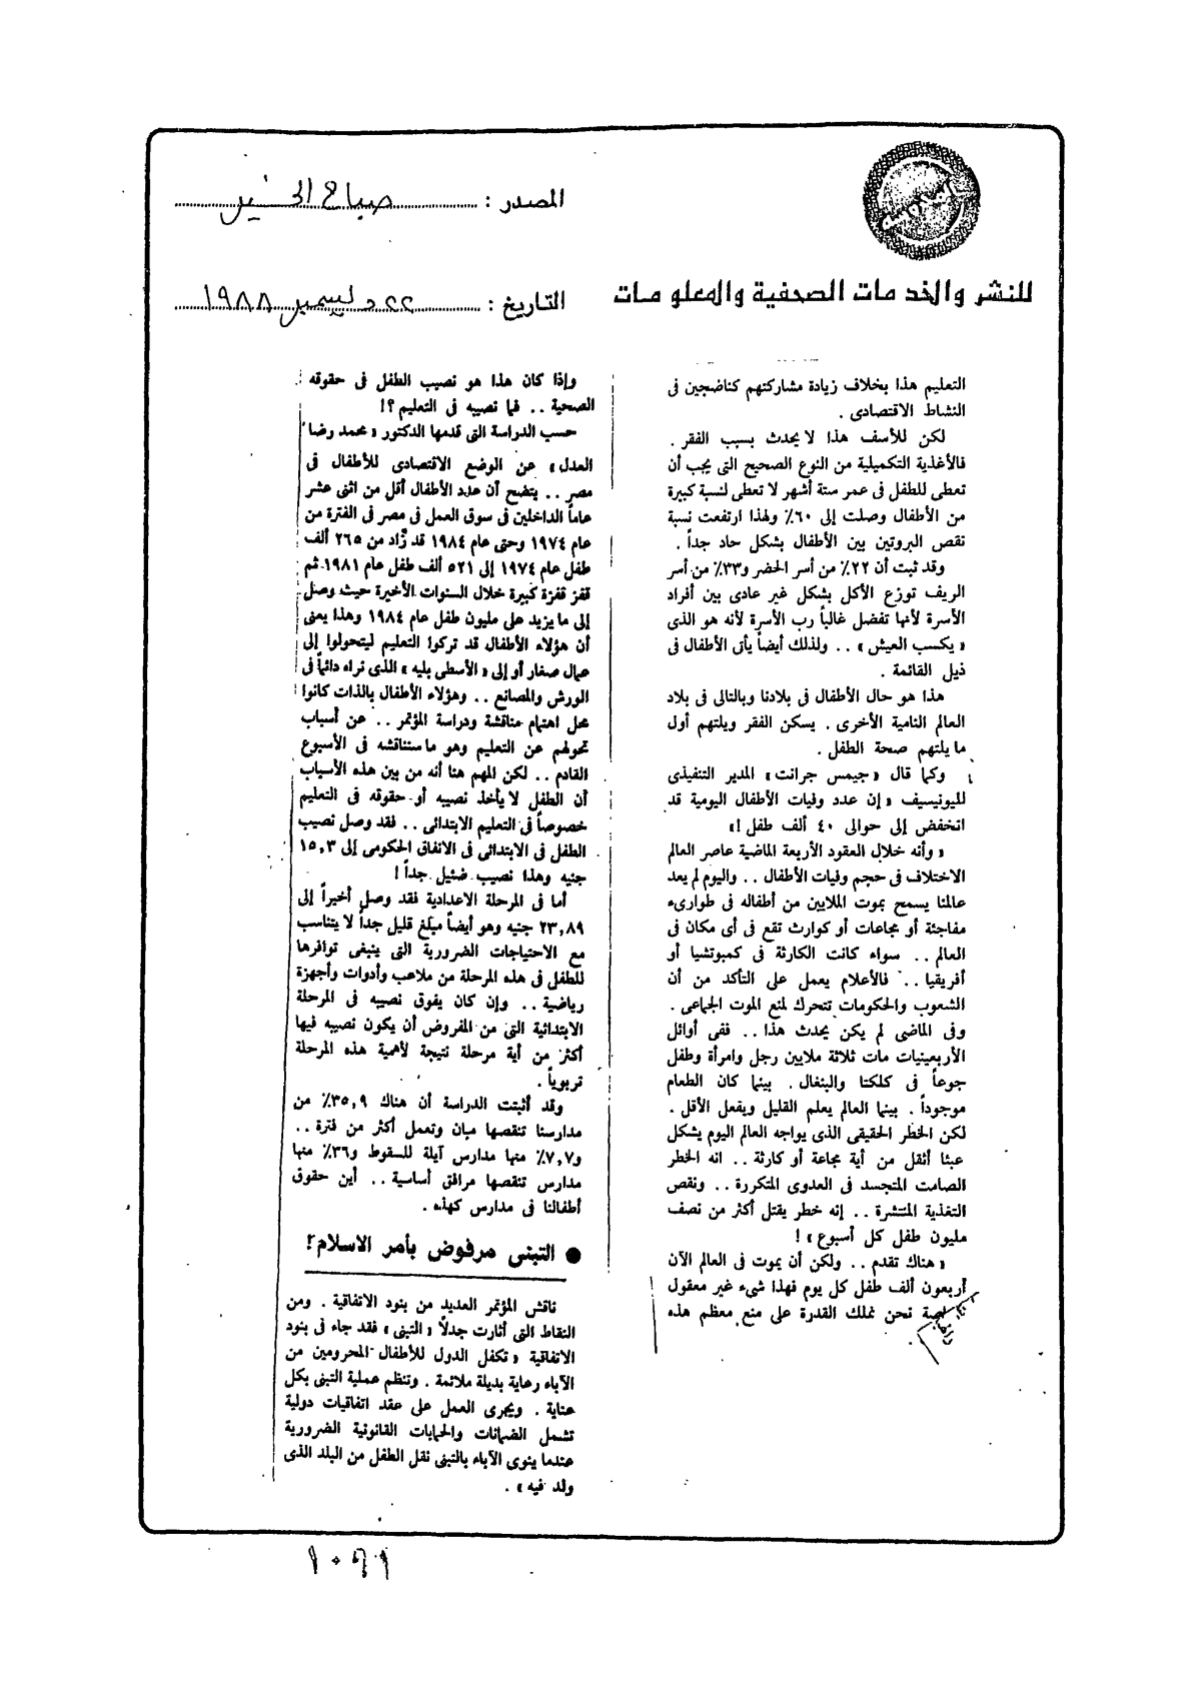 المصدر : صباح الخير
للنشر والخدمات الصحفية والمعلومات
التاريخ : ٢٢ ديسمبر ١٩٨٨
التعليم هذا بخلاف زيادة مشاركتهم كناضجين فى
النشاط الاقتصادى .
لكن للأسف هذا لا يحدث بسبب الفقر .
فالأغذية التكميلية من النوع الصحيح التى يجب أن
تعطى للطفل فى عمر ستة أشهر لا تعطى لنسبة كبيرة
من الأطفال وصلت إلى ٦٠٪ ولهذا ارتفعت نسبة
نقص البروتين بين الأطفال بشكل حاد جداً .
وقد ثبت أن ٢٢٪ من أسر الحضر و٣٣٪ من أسر
الريف توزع الأكل بشكل غير عادى بين أفراد
الأسرة لأنها تفضل غالباً رب الأسرة لأنه هو الذى
« يكسب العيش » .. ولذلك أيضاً يأتى الأطفال فى
ذيل القائمة .
هذا هو حال الأطفال فى بلادنا وبالتالى فى بلاد
العالم النامية الأخرى . يسكن الفقر ويلتهم أول
ما يلتهم صحة الطفل .
وكما قال « جيمس جرانت » المدير التنفيذى
لليونيسيف « إن عدد وفيات الأطفال اليومية قد
انخفض إلى حوالى ٤٠ ألف طفل !»
« وأنه خلال العقود الأربعة الماضية عاصر العالم
الاختلاف فى حجم وفيات الأطفال .. واليوم لم يعد
عالمنا يسمح بموت الملايين من أطفاله فى طوارىء
مفاجئة أو مجاعات أو كوارث تقع فى أى مكان فى
العالم .. سواء كانت الكارثة فى كمبوتشيا أو
أفريقيا .. فالأعلام يعمل على التأكد من أن
الشعوب والحكومات تتحرك لمنع الموت الجماعى .
وفى الماضى لم يكن يحدث هذا .. ففى أوائل
الأربعينيات مات ثلاثة ملايين رجل وامرأة وطفل
جوعاً فى كلكتا والبنغال . بينما كان الطعام
موجوداً . بينما العالم يعلم القليل ويفعل الأقل .
لكن الخطر الحقيقى الذى يواجه العالم اليوم يشكل
عبئا أثقل من أية مجاعة أو كارثة .. انه الخطر
الصامت المتجسد فى العدوى المتكررة .. ونقص
التغذية المنتشرة .. إنه خطر يقتل أكثر من نصف
مليون طفل كل أسبوع » !
« هناك تقدم .. ولكن أن يموت فى العالم الآن
أربعون ألف طفل كل يوم فهذا شىء غير معقول
نحن نملك القدرة على منع معظم هذه
وإذا كان هذا هو نصيب الطفل فى حقوقه
الصحية .. فما نصيبه فى التعليم ؟!
حسب الدراسة التى قدمها الدكتور « محمد رضا
العدل » عن الوضع الاقتصادى للأطفال فى
مصر .. يتضح أن عدد الأطفال أقل من اثنى عشر
عاماً الداخلين فى سوق العمل فى مصر فى الفترة من
عام ١٩٧٤ وحتى عام ١٩٨٤ قد زاد من ٢٦٥ ألف
طفل عام ١٩٧٤ إلى ٥٢١ ألف طفل عام ١٩٨١ ثم
قفز قفزة كبيرة خلال السنوات الأخيرة حيث وصل
إلى ما يزيد على مليون طفل عام ١٩٨٤ وهذا يعنى
أن هؤلاء الأطفال قد تركوا التعليم ليتحولوا إلى
عمال صغار أو إلى « الأسطى بليه » الذى نراه دائماً فى
الورش والمصانع .. وهؤلاء الأطفال بالذات كانوا
محل اهتمام مناقشة ودراسة المؤتمر .. عن أسباب
تحولهم عن التعليم وهو ما سنناقشه فى الأسبوع
القادم .. لكن المهم هنا أنه من بين هذه الأسباب
أن الطفل لا يأخذ نصيبه أو حقوقه فى التعليم
خصوصاً فى التعليم الابتدائى .. فقد وصل نصيب
الطفل فى الابتدائى فى الانفاق الحكومى إلى ١٥,٣
جنيه وهذا نصيب ضئيل جداً !
أما فى المرحلة الاعدادية فقد وصل أخيراً إلى
٢٣,٨٩ جنيه وهو أيضاً مبلغ قليل جداً لا يتناسب
مع الاحتياجات الضرورية التى ينبغى توافرها
للطفل فى هذه المرحلة من ملاعب وأدوات وأجهزة
رياضية .. وإن كان يفوق نصيبه فى المرحلة
الابتدائية التى من المفروض أن يكون نصيبه فيها
أكثر من أية مرحلة نتيجة لأهمية هذه المرحلة
تربوياً .
وقد أثبتت الدراسة أن هناك ٣٥,٩٪ من
مدارسنا تنقصها مبان وتعمل أكثر من فترة ..
و٧,٧٪ منها مدارس آيلة للسقوط و٣٦٪ منها
مدارس تنقصها مرافق أساسية .. أين حقوق
أطفالنا فى مدارس كهذه .
● التبنى مرفوض بأمر الاسلام !
ناقش المؤتمر العديد من بنود الاتفاقية . ومن
النقاط التى أثارت جدلاً « التبنى » فقد جاء فى بنود
الاتفاقية « تكفل الدول للأطفال المحرومين من
الآباء رعاية بديلة ملائمة . وتنظم عملية التبنى بكل
عناية . ويجرى العمل على عقد اتفاقيات دولية
تشمل الضمانات والحمايات القانونية الضرورية
عندما ينوى الآباء بالتبنى نقل الطفل من البلد الذى
ولد فيه » .